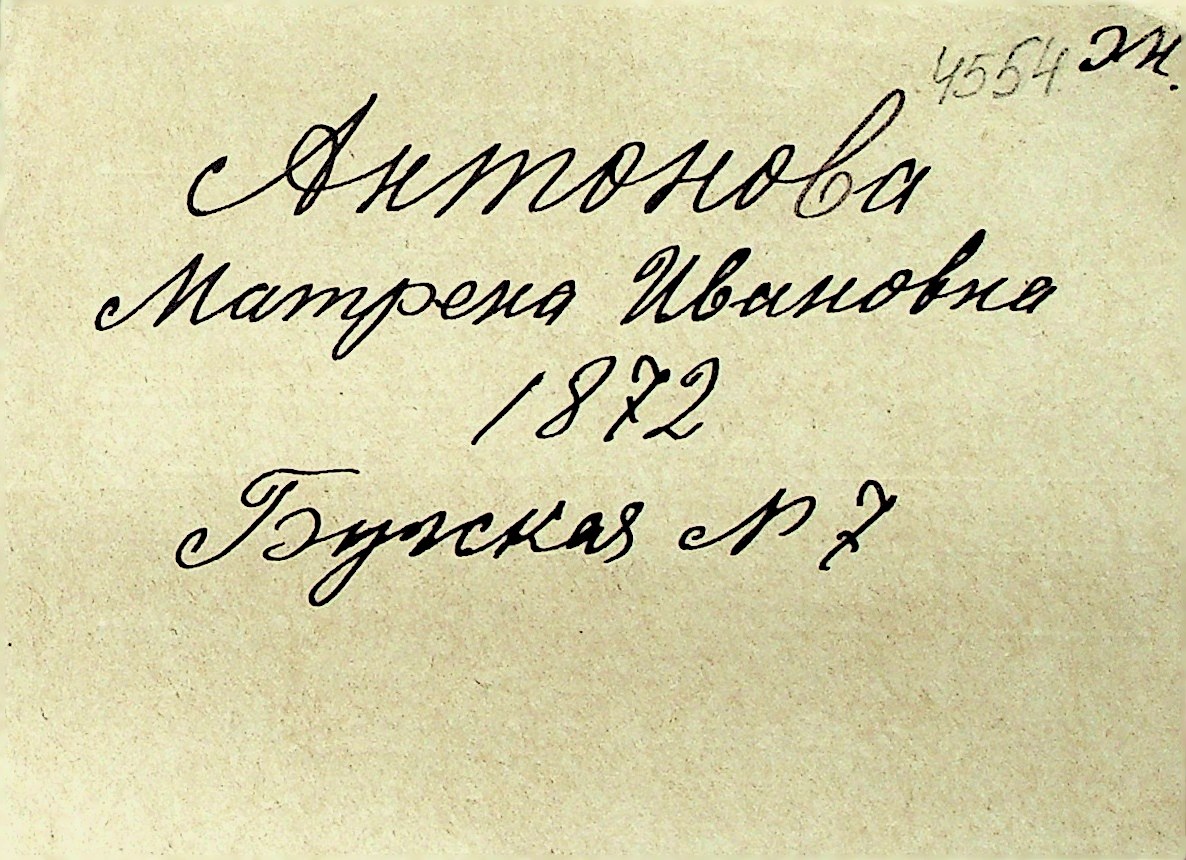 4554 эк.
Антонова
Матрена Ивановна
1872
Бужская № 7